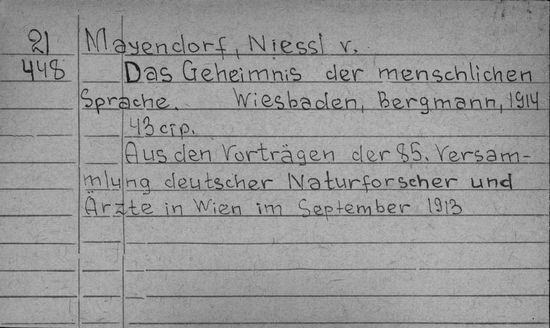 21 Mayendorf, Niessl v.
448 Das Geheimnis der menschlichen
Sprache. Wiesbaden, Bergmann, 1914
43 стр.
Aus den Vorträgen der 85. Versam-
mlung deutscher Naturforscher und
Ärzte in Wien im September 1913